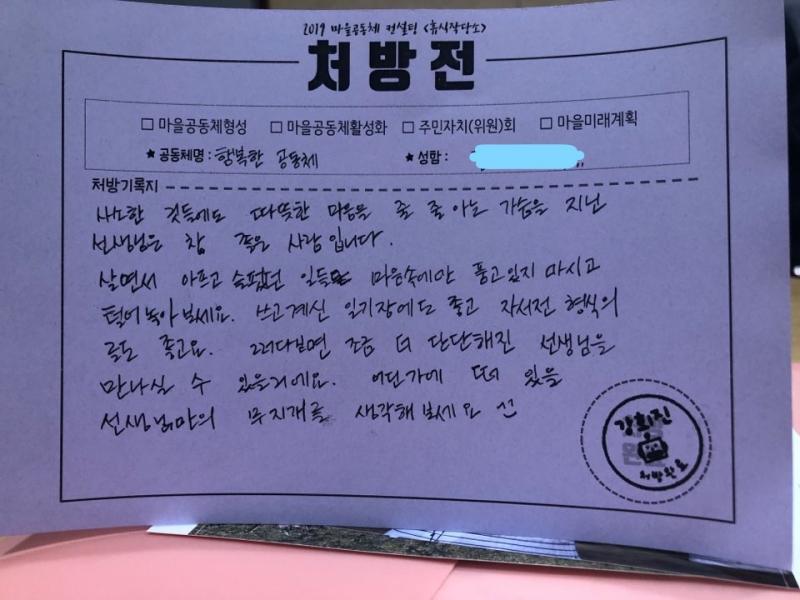 2019 마을공동체 컨설팅 <휴식작당소>
처방전
□ 마을공동체형성 □ 마을공동체활성화 □ 주민자치(위원)회 □ 마을미래계획
★ 공동체명 : 행복한 공동체 ★ 성함 :
처방기록지
사소한 것들에도 따뜻한 마음을 줄 줄 아는 가슴을 지닌
선생님은 참 좋은 사람입니다.
살면서 아프고 슬펐던 일들 마음속에만 품고있지 마시고
털어놓아 보세요. 쓰고계신 일기장에도 좋고 자서전 형식의
글도 좋고요. 그러다보면 조금 더 단단해진 선생님을
만나실 수 있을거에요. 어딘가에 떠 있을
선생님만의 무지개를 생각해보세요
강희진
처방완료